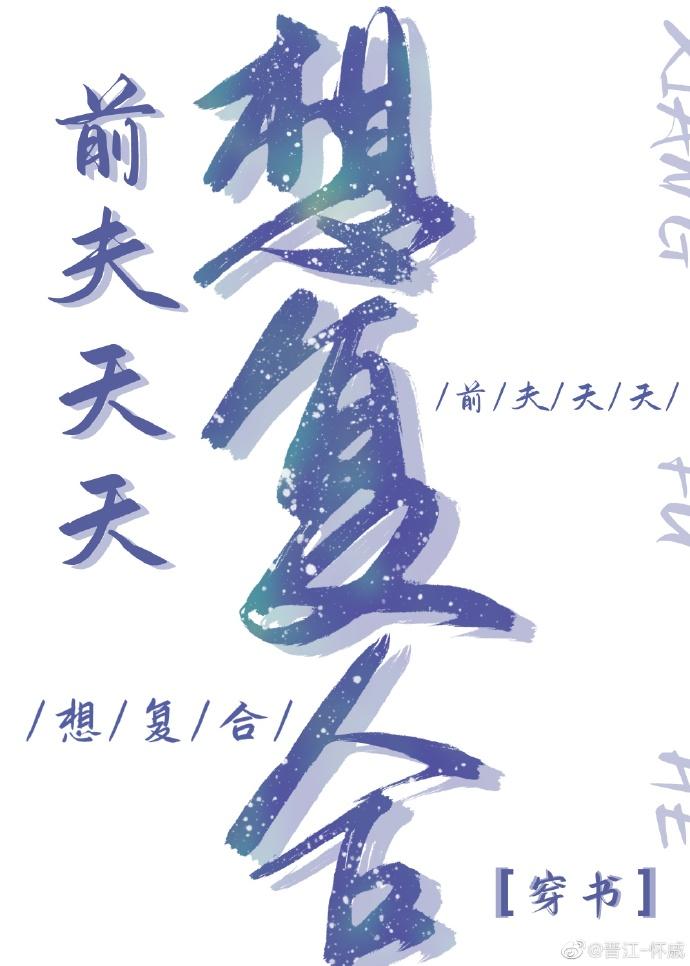 前夫天天
想复合
/前/夫/天/天/
/想/复/合/
XIANG
FU
HE
[穿书]
@晋江-怀戚